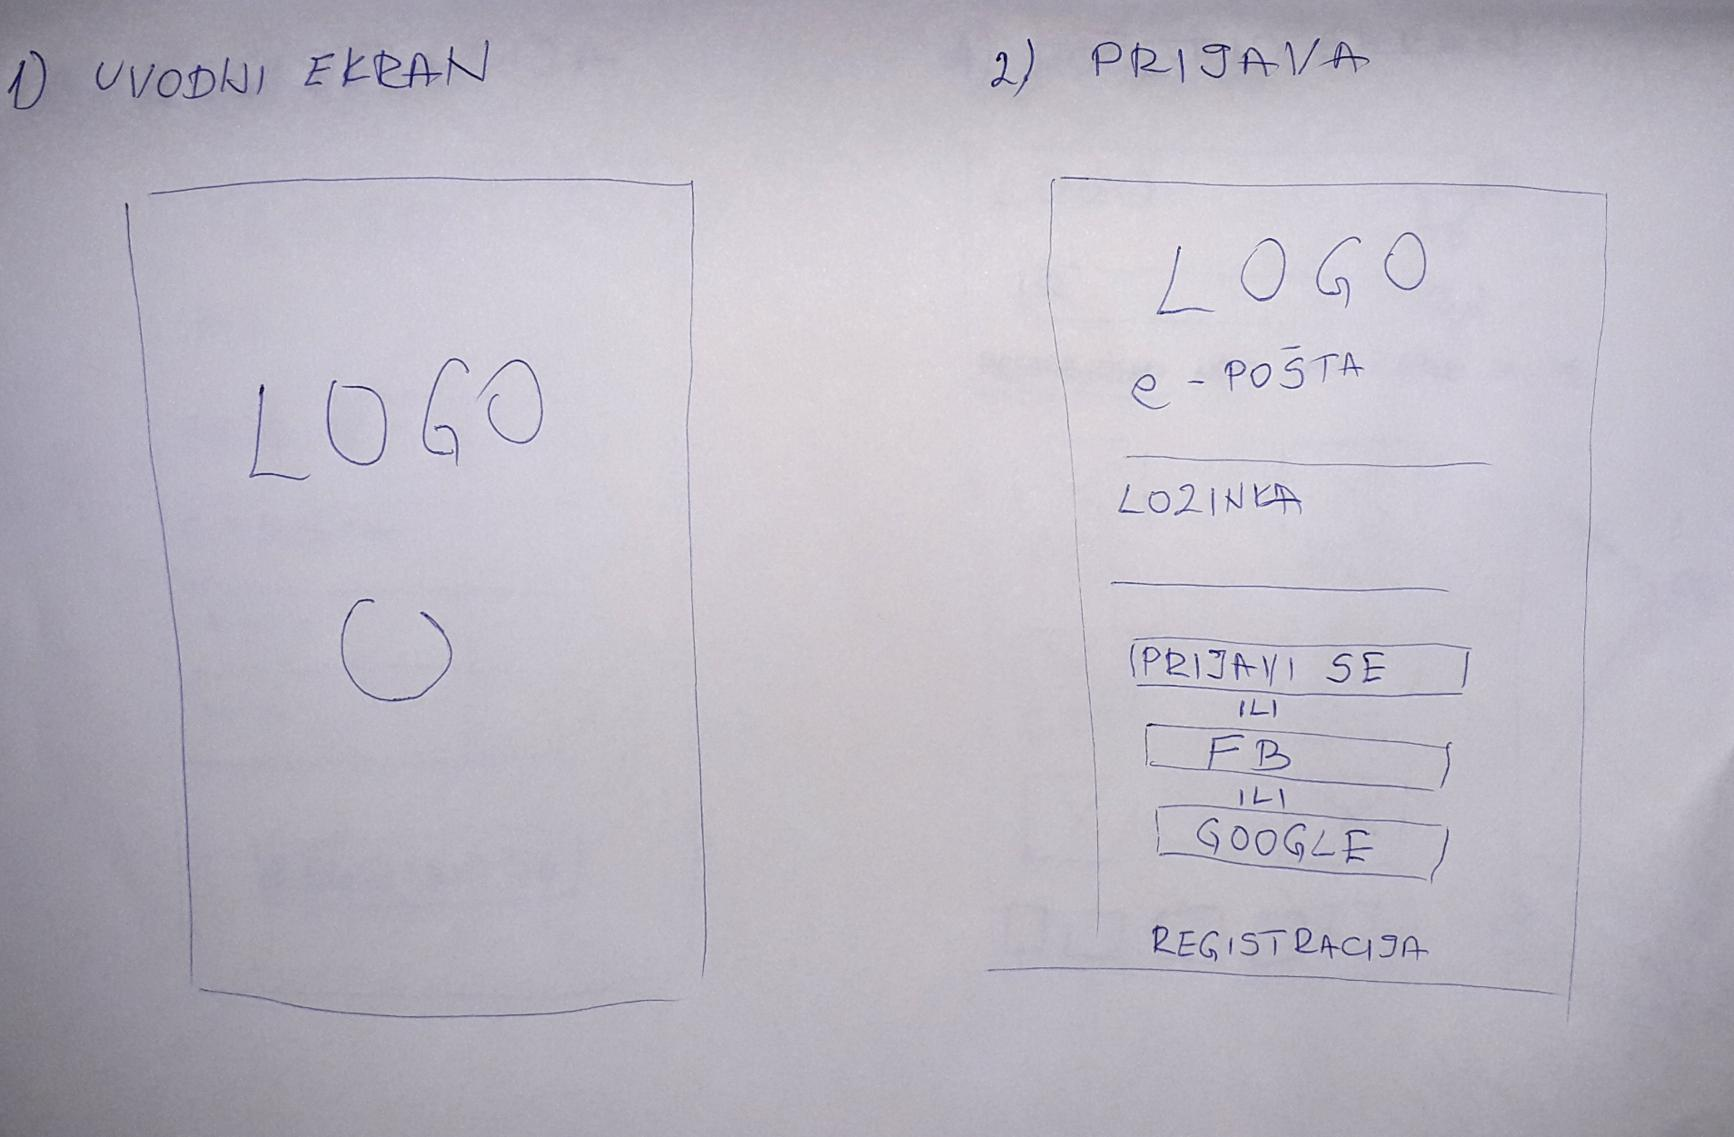 1) UVODNI EKRAN
LOGO
2) PRIJAVA
LOGO
e-POŠTA
LOZINKA
PRIJAVI SE
ILI
FB
ILI
GOOGLE
REGISTRACIJA